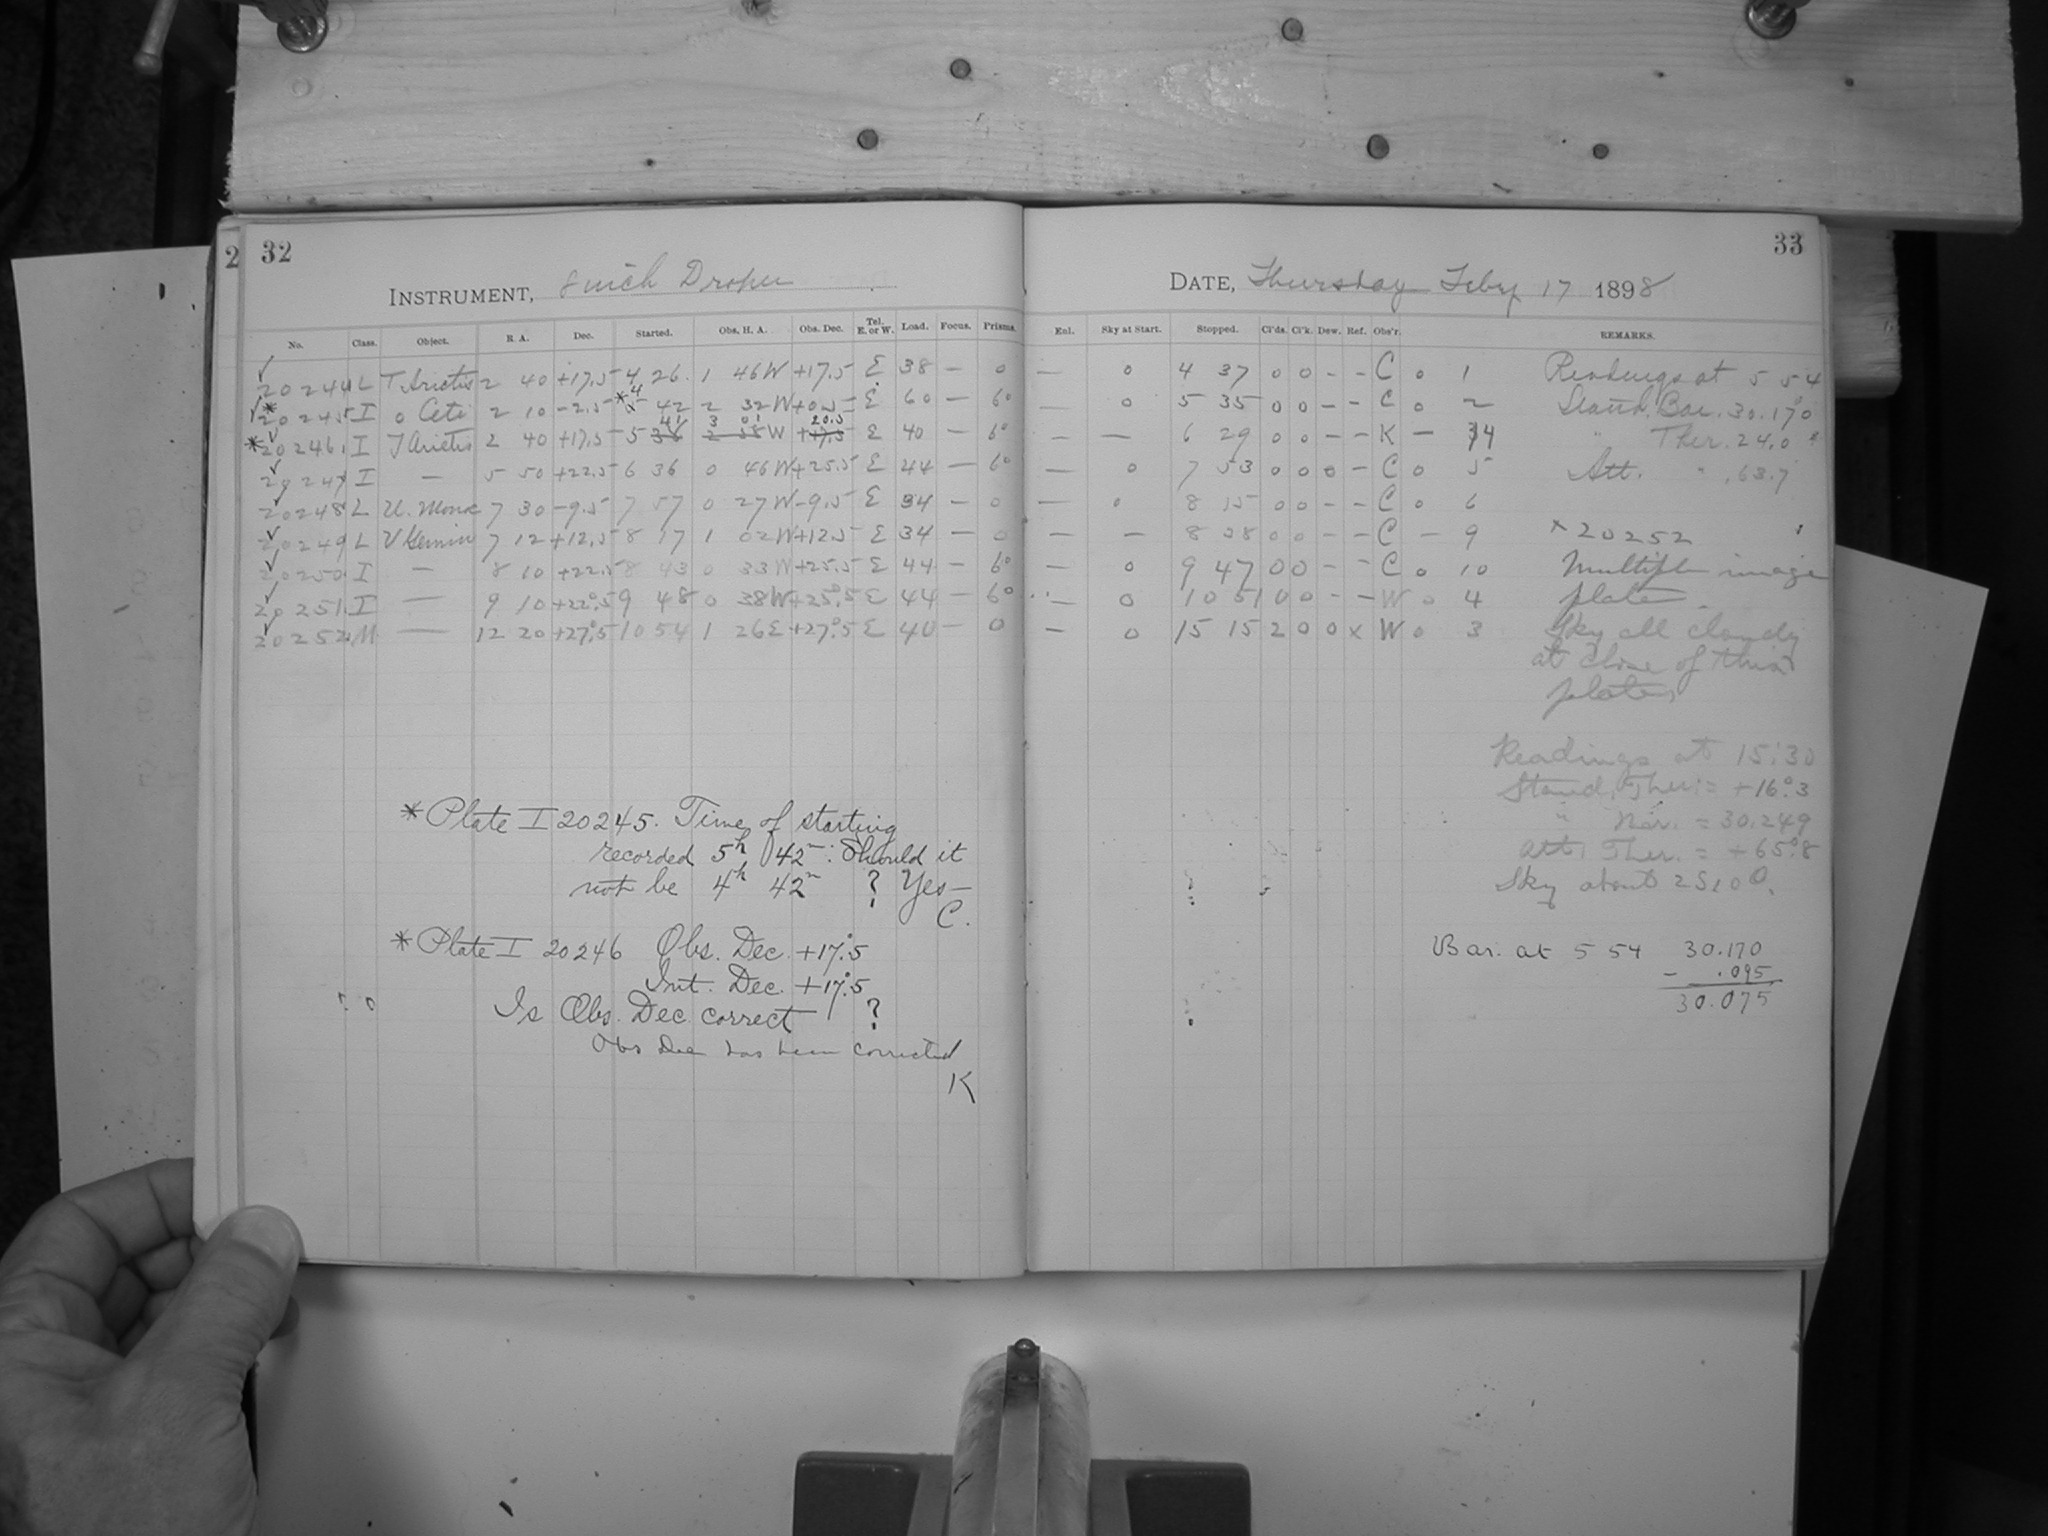 2 32
33
INSTRUMENT, 8 inch Draper
DATE, Thursday Feby 17 1898
No. Class. Object. R. A. Dec. Started. Obs. H. A. Obs. Dec. Tel. E. or W. Load. Focus. Prisms.
Enl. Sky at Start. Stopped. Cl'ds. Cl'k. Dew. Ref. Obs'r. REMARKS.
✓ 20244 L T Arietis 2 40 +17.5 4 26 1 46 W +17.5 E 38 — 0 — 0 4 37 0 0 - - C 0 1 Readings at 5 54
✓* 20245 I o Ceti 2 10 -2.5 *4 5 42 2 32 W +0.5 E 60 — 6° — 0 5 35 0 0 - - C 0 2 Stand. Bar. 30.170
*✓ 20246 I T Arietis 2 40 +17.5 5 41 38 3 01 2 58 W 20.5 +17.5 E 40 — 6° — — 6 29 0 0 - - K — 34 " Ther. 24.0
✓ 20247 I — 5 50 +22.5 6 36 0 46 W +25.5 E 44 — 6° — 0 7 53 0 0 0 - C 0 5 Att. " 63.7
✓ 20248 L U. Monoc 7 30 -9.5 7 57 0 27 W -9.5 E 34 — 0 — 0 8 15 0 0 - - C 0 6
✓ 20249 L V Gemin 7 12 +12.5 8 17 1 02 W +12.5 E 34 — 0 — — 8 38 0 0 - - C — 9 × 20252
✓ 20250 I — 8 10 +22.5 8 43 0 33 W +25.5 E 44 — 6° — 0 9 47 0 0 - - C 0 10 Multiple image
✓ 20251 I — 9 10 +22°.5 9 48 0 38 W +25°.5 E 44 — 6° — 0 10 51 0 0 - - W 0 4 plate.
✓ 20252 M — 12 20 +27°.5 10 54 1 26 E +27°.5 E 40 — 0 — 0 15 15 2 0 0 x W 0 3 Sky all cloudy
at close of this
plate.
Readings at 15:30
Stand. Ther. = +16°.3
" Bar. = 30.249
Att. Ther. = +65°.8
Sky about
Bar. at 5 54 30.170
- .095
30.075
* Plate I 20245. Time of starting
recorded 5h 42m: Should it
not be 4h 42m ? Yes—
C.
* Plate I 20246 Obs. Dec. +17°.5
Int. Dec. +17°.5
Is Obs. Dec. correct ?
Obs Dec has been corrected
K